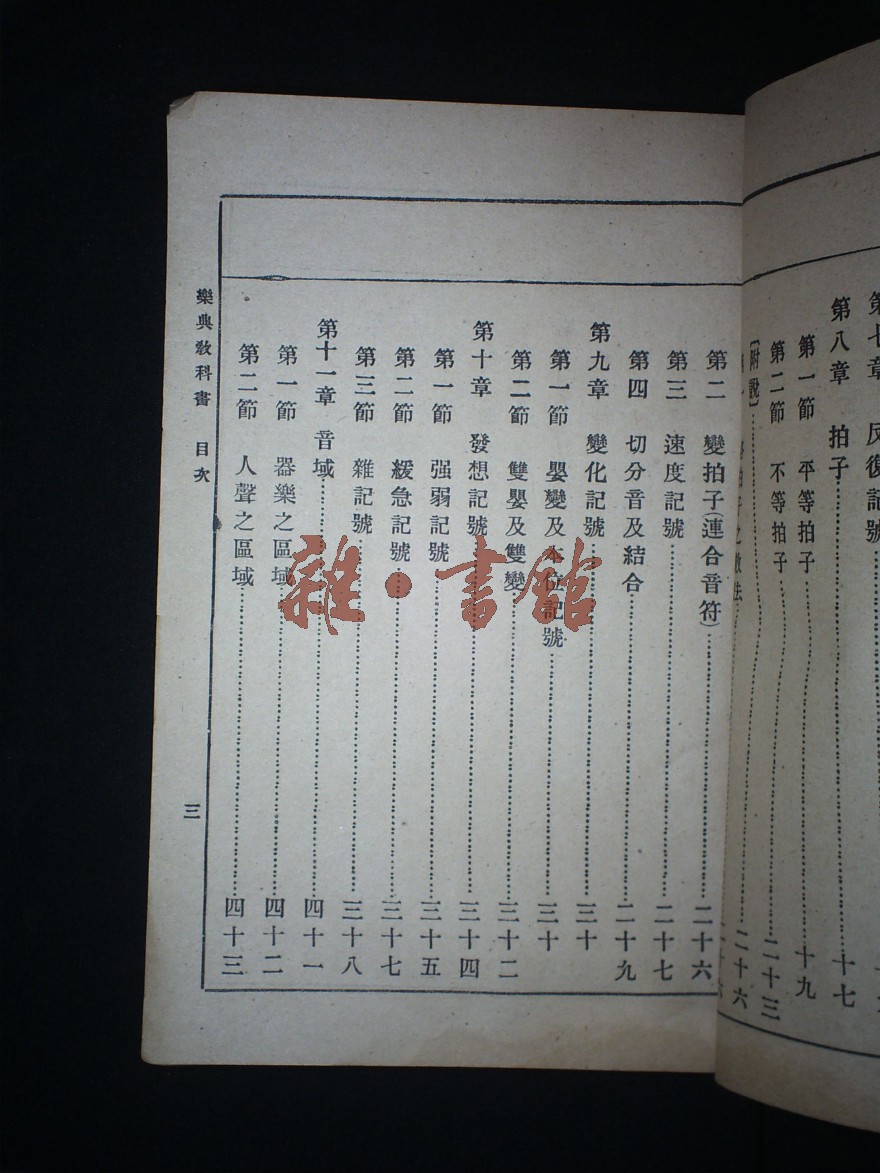 反復記號
第八章 拍子
十七
第一節 平等拍子
十九
第二節 不等拍子
二十三
〔附說〕
二十六
第二 變拍子(連合音符)
二十六
第三 速度記號
二十七
第四 切分音及結合
二十九
第九章 變化記號
三十
第一節 嬰變及本位記號
三十
第二節 雙嬰及雙變
三十二
第十章 發想記號
三十四
第一節 强弱記號
三十五
第二節 緩急記號
三十七
第三節 雜記號
三十八
第十一章 音域
四十一
第一節 器樂之區域
四十二
第二節 人聲之區域
四十三
樂典敎科書 目次
三
雜·書館